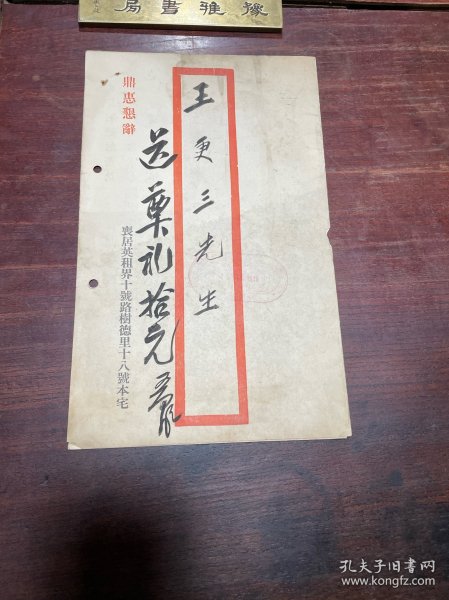 豫雅書局
王更三先生
送奠礼拾元
鼎惠懇辭
喪居英租界十號路樹德里十八號本宅
孔夫子旧书网
www.kongfz.com